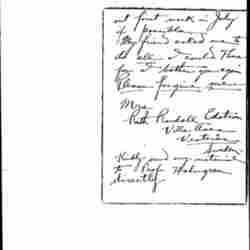 out front work in July
if possible.
My friend asked me to
do all I could there
for I bother you again
Please forgive me
Mrs.
Ruth Randall Edström
Villa
Västerås
Sweden
Kindly send any material
to Prof. Holmgren
directly